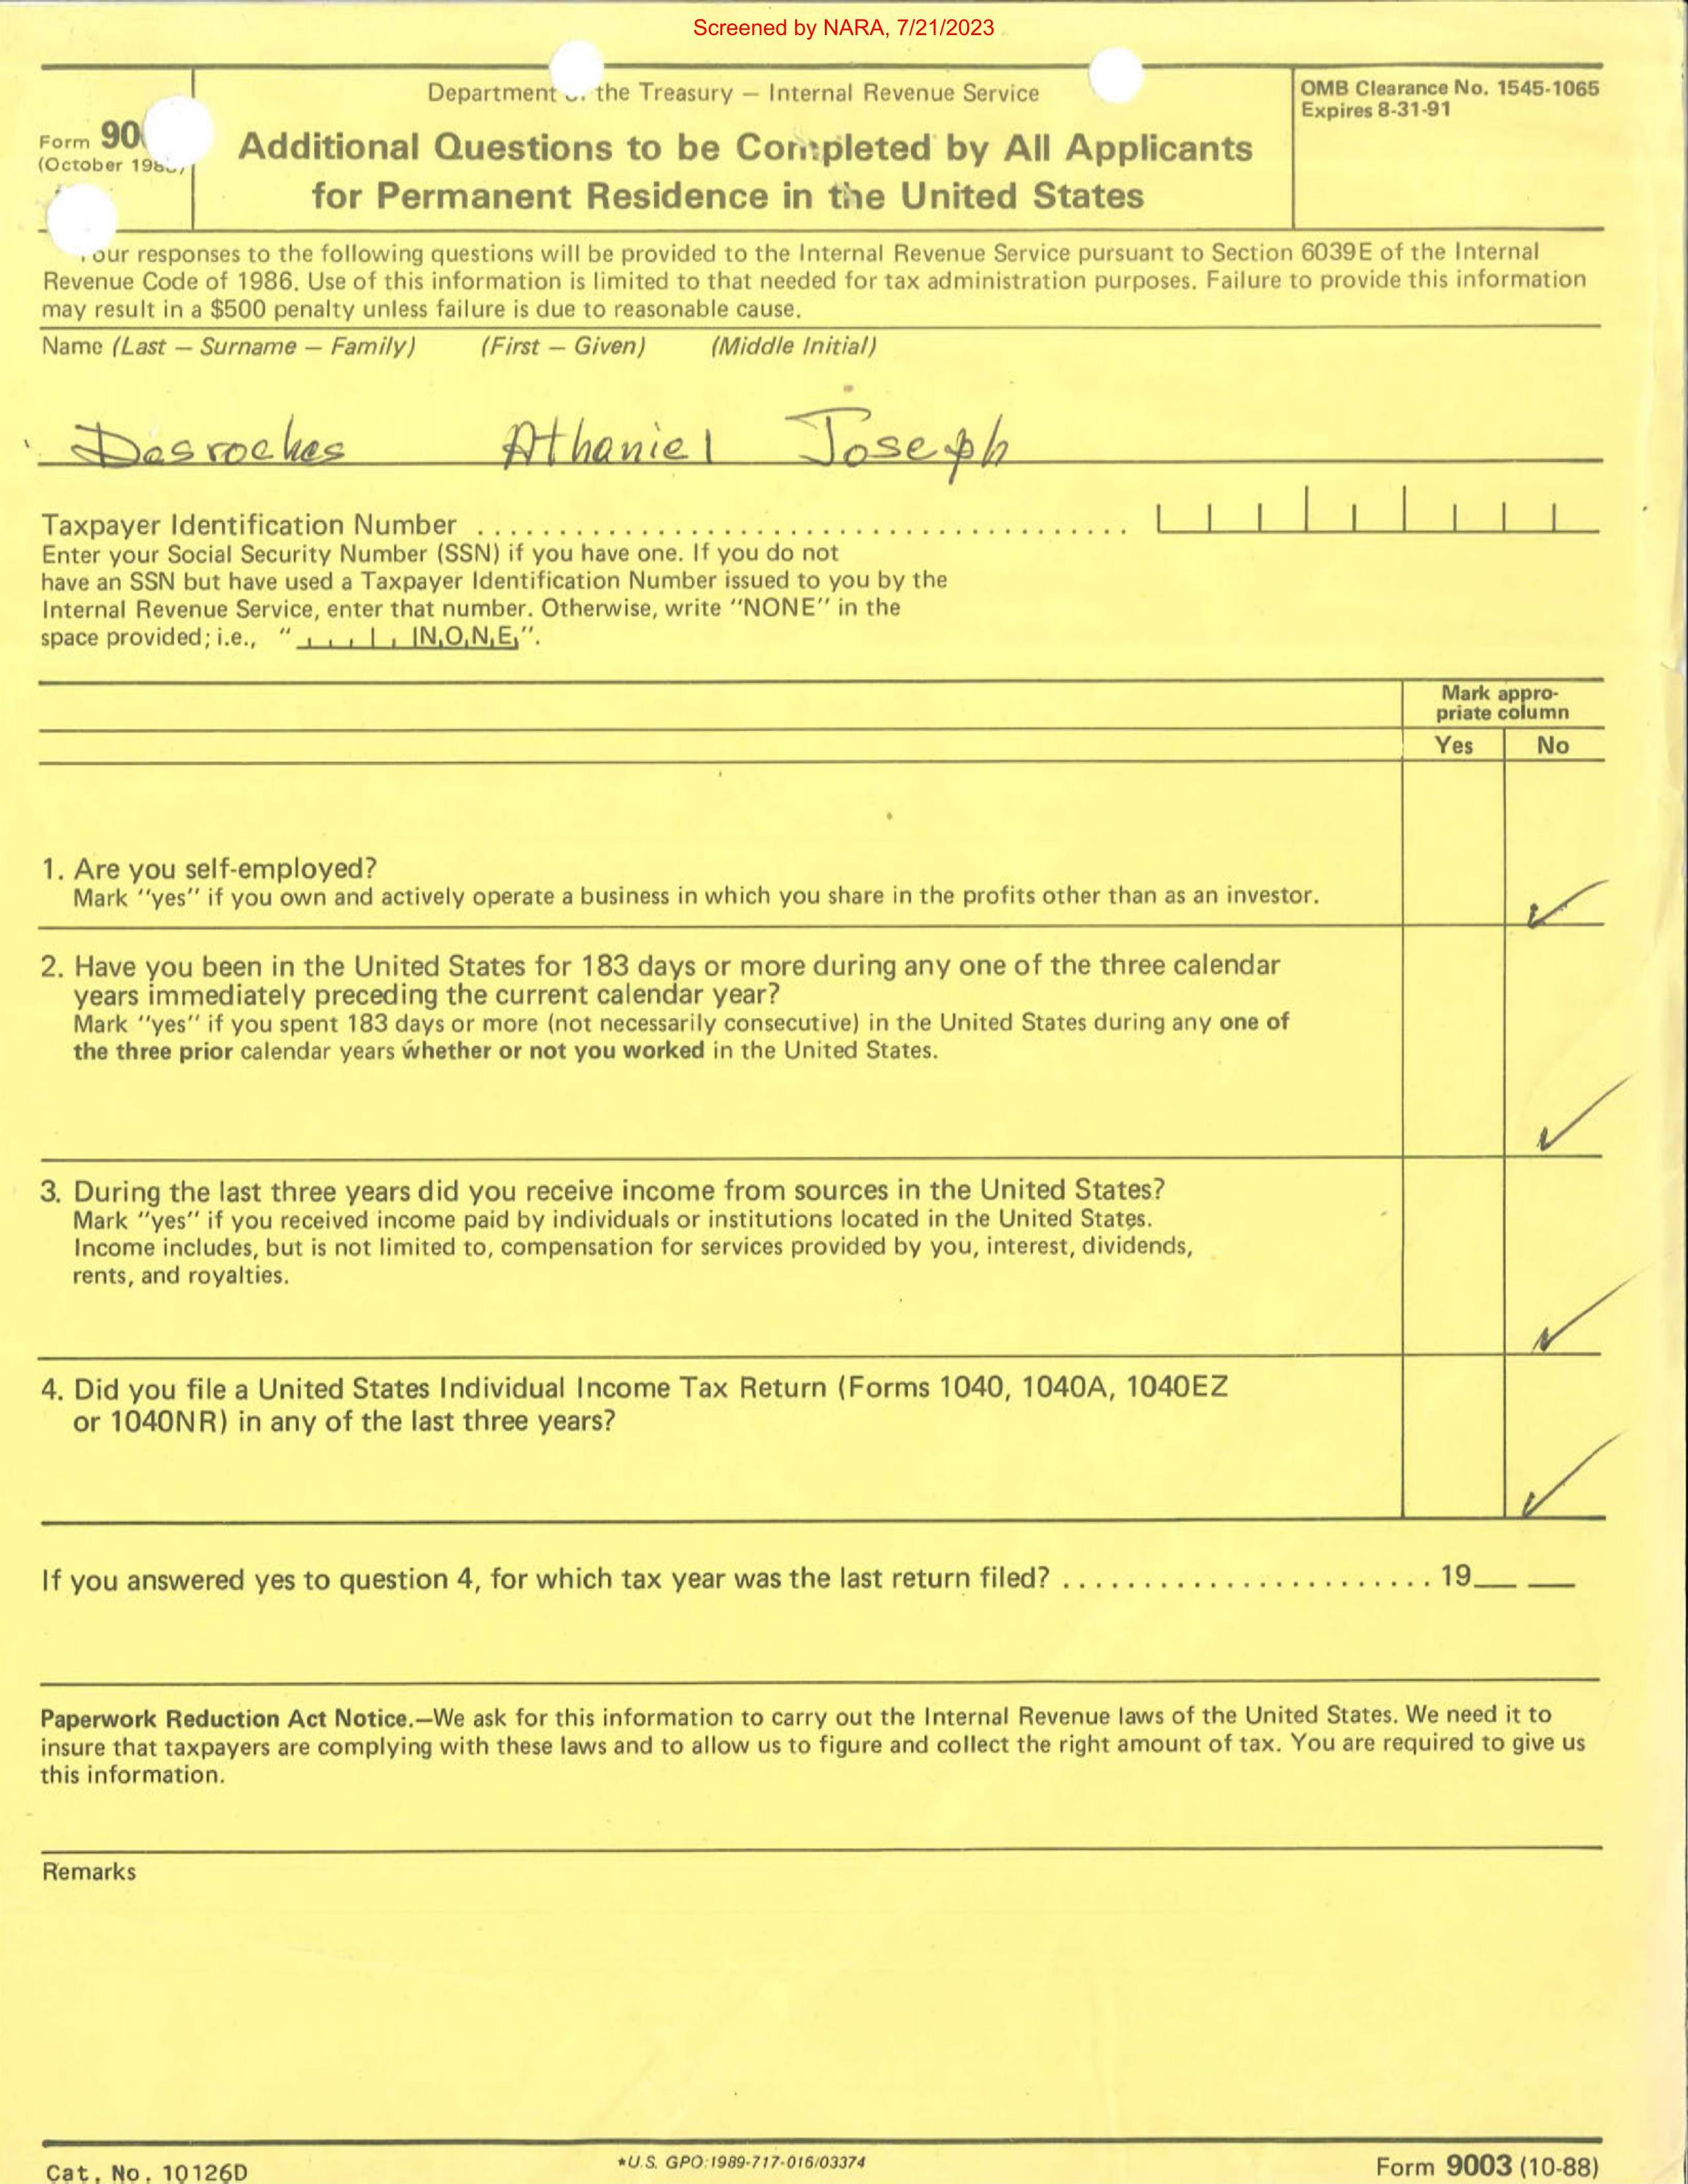 Screened by NARA, 7/21/2023
Department the Treasury — Internal Revenue Service
OMB Clearance No. 1545-1065
Expires 8-31-91
Form 90
(October 198
Additional Questions to be Completed by All Applicants
for Permanent Residence in the United States
our responses to the following questions will be provided to the Internal Revenue Service pursuant to Section 6039E of the Internal
Revenue Code of 1986. Use of this information is limited to that needed for tax administration purposes. Failure to provide this information
may result in a $500 penalty unless failure is due to reasonable cause.
Name (Last — Surname — Family) (First — Given) (Middle Initial)
Desroches Athaniel Joseph
Taxpayer Identification Number ........................................
Enter your Social Security Number (SSN) if you have one. If you do not
have an SSN but have used a Taxpayer Identification Number issued to you by the
Internal Revenue Service, enter that number. Otherwise, write "NONE" in the
space provided; i.e., " NONE".
Mark appro-
priate column
Yes No
1. Are you self-employed?
Mark "yes" if you own and actively operate a business in which you share in the profits other than as an investor.
2. Have you been in the United States for 183 days or more during any one of the three calendar
years immediately preceding the current calendar year?
Mark "yes" if you spent 183 days or more (not necessarily consecutive) in the United States during any one of
the three prior calendar years whether or not you worked in the United States.
3. During the last three years did you receive income from sources in the United States?
Mark "yes" if you received income paid by individuals or institutions located in the United States.
Income includes, but is not limited to, compensation for services provided by you, interest, dividends,
rents, and royalties.
4. Did you file a United States Individual Income Tax Return (Forms 1040, 1040A, 1040EZ
or 1040NR) in any of the last three years?
If you answered yes to question 4, for which tax year was the last return filed? ....................... 19__ __
Paperwork Reduction Act Notice.—We ask for this information to carry out the Internal Revenue laws of the United States. We need it to
insure that taxpayers are complying with these laws and to allow us to figure and collect the right amount of tax. You are required to give us
this information.
Remarks
Cat. No. 10126D
*U.S. GPO:1989-717-016/03374
Form 9003 (10-88)